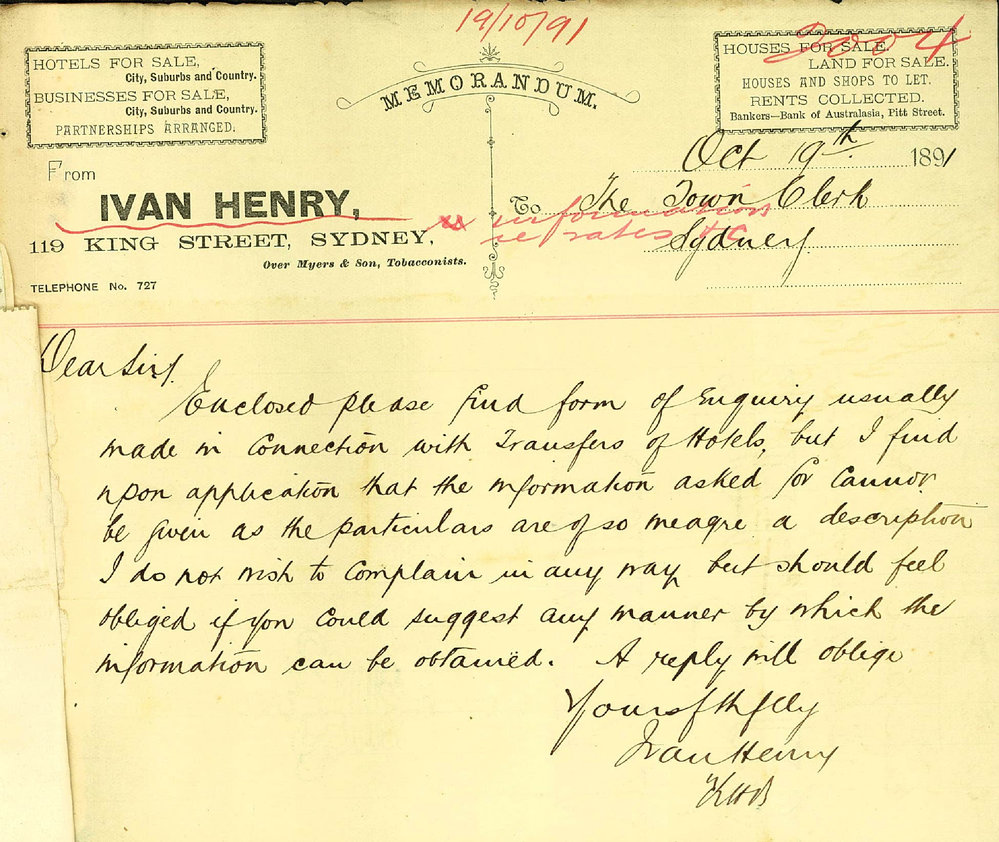 19/10/91
HOTELS FOR SALE,
City, Suburbs and Country.
BUSINESSES FOR SALE,
City, Suburbs and Country.
PARTNERSHIPS ARRANGED.
MEMORANDUM.
2004
HOUSES FOR SALE.
LAND FOR SALE.
HOUSES AND SHOPS TO LET.
RENTS COLLECTED.
Bankers—Bank of Australasia, Pitt Street.
From
IVAN HENRY,
119 KING STREET, SYDNEY,
Over Myers & Son, Tobacconists.
TELEPHONE No. 727
Oct 19th 1891
To The Town Clerk
Sydney
information
re rates &c
Dear Sir,
Enclosed please find form of Enquiry usually
made in Connection with Transfers of Hotels, but I find
upon application that the information asked for Cannot
be given as the particulars are of so meagre a description
I do not wish to Complain in any way but should feel
obliged if you Could suggest any manner by which the
information can be obtained. A reply will oblige
Yours fthflly
Ivan Henry